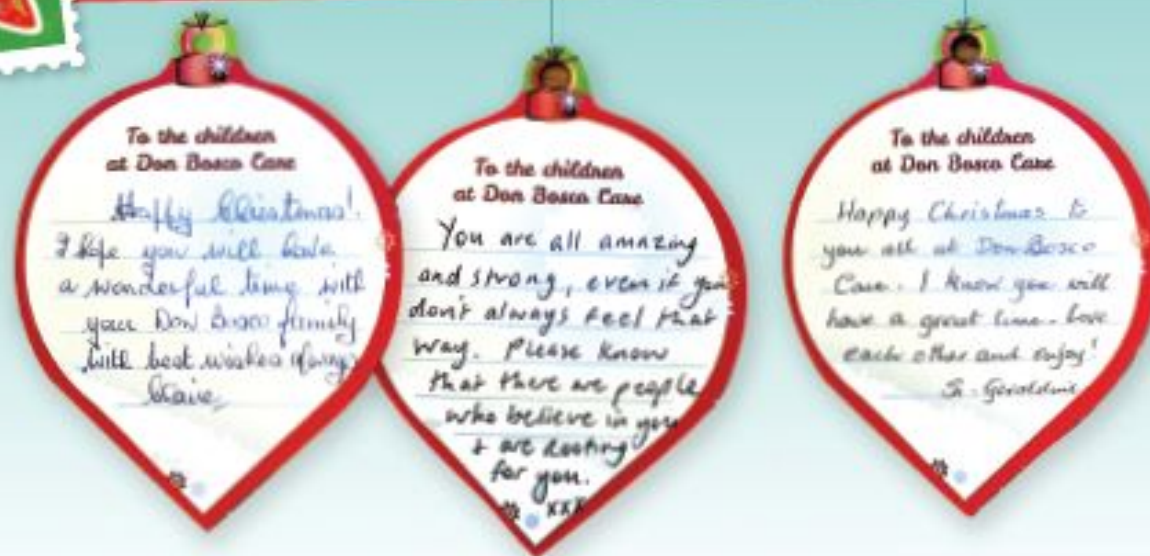 To the children
at Don Bosco Care
Happy Christmas!
I hope you will have
a wonderful time with
your Don Bosco family
with best wishes always
Claire
To the children
at Don Bosco Care
You are all amazing
and strong, even if you
don't always feel that
way. Please know
that there are people
who believe in you
& are rooting
for you.
xxx
To the children
at Don Bosco Care
Happy Christmas to
you all at Don Bosco
Care. I know you will
have a great time. Love
each other and enjoy!
Sr. Geraldine